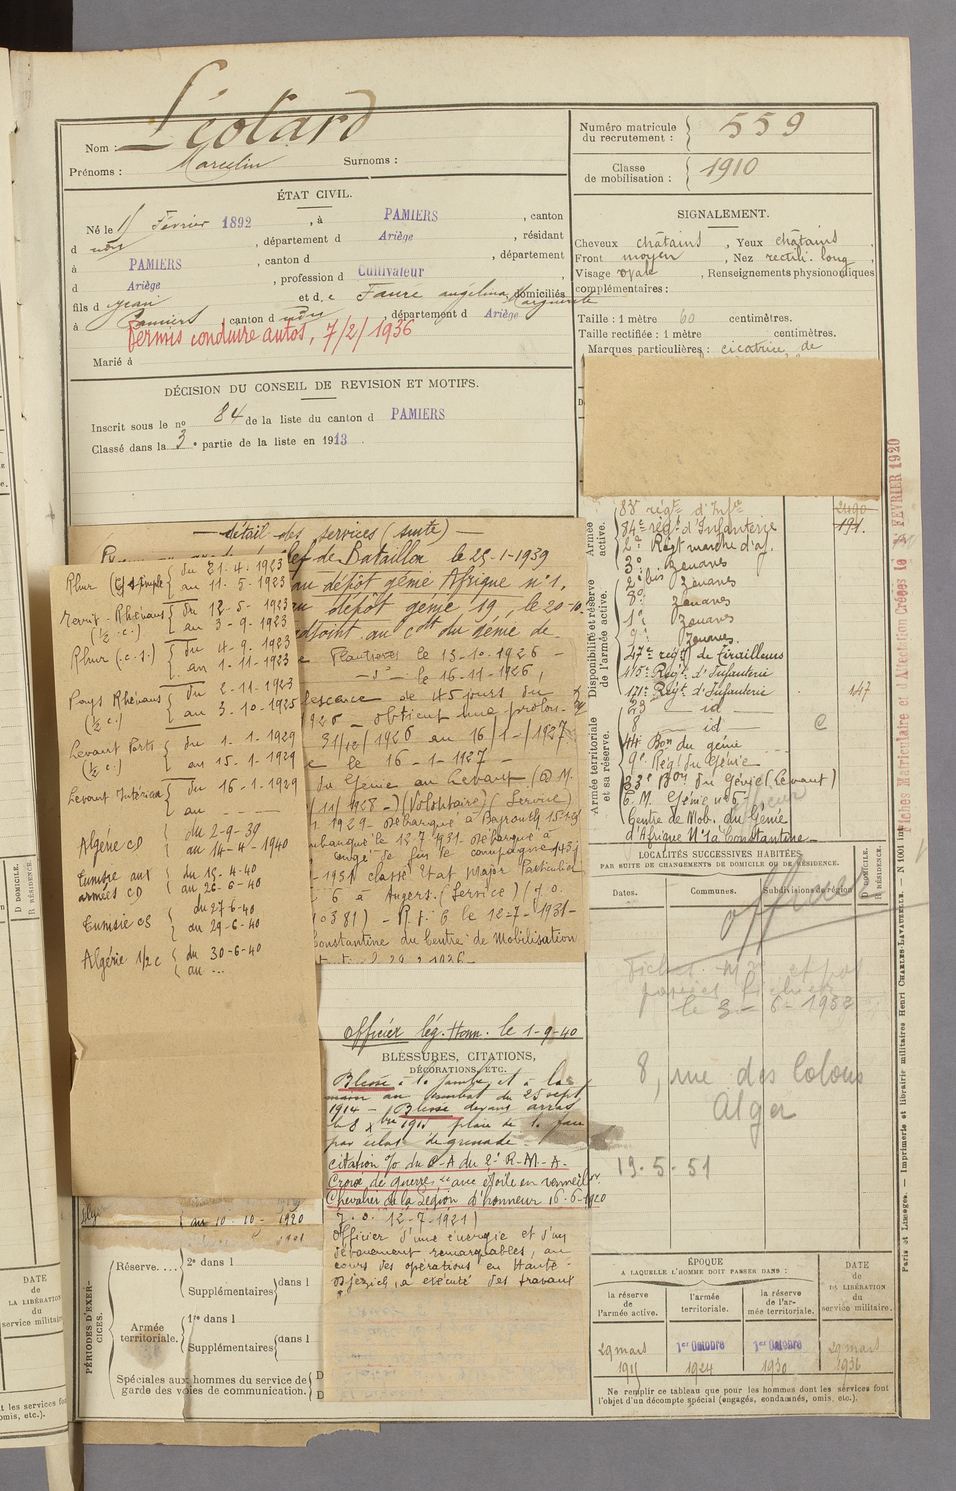 Nom : Léotard
Prénoms : Marcelin Surnoms :
Numéro matricule du recrutement : 559
Classe de mobilisation : 1910
ÉTAT CIVIL.
Né le 15 Février 1892, à PAMIERS, canton
d udns, département d Ariège, résidant
à PAMIERS, canton d , département
d Ariège, profession d Cultivateur,
fils d Jean et d e Faure angélina, Marguerite domiciliés
à Pamiers, canton d udns, département d Ariège
Permis conduire autos, 7/2/1936
Marié à
SIGNALEMENT.
Cheveux châtains, Yeux châtains,
Front moyen, Nez rectil. long,
Visage ovale, Renseignements physionomiques
complémentaires :
Taille : 1 mètre 60 centimètres.
Taille rectifiée : 1 mètre centimètres.
Marques particulières : cicatrice de
DÉCISION DU CONSEIL DE REVISION ET MOTIFS.
Inscrit sous le no 84 de la liste du canton d PAMIERS
Classé dans la 3e partie de la liste en 1913.
— détail des services (suite) —
de Bataillon le 25-1-1939
au dépôt génie Afrique n°1,
dépôt génie 19, le 20-10-
adjoint au cott du génie de
le 13-10-1926 -
le 16-11-1926,
de 45 jours du
1926 _ obtient une prolon-
31/12/1926 au 16/1-/1927
le 16-1-1927 -
du Génie au Levant (D.M.
11/1928 -) (Volontaire) (Service)
1929- Débarqué à Beyrouth 15-1-29
le 12-7-1931. Débarqué à
congé de fin de campagne
1931 classé Etat Major Particulier
6 à Angers. (Service) (J.O.
10381) - R.f. 6 le 12-7-1931-
Constantine du Centre de Mobilisation
Rhur (C/ simple) du 21-4-1923
au 11-5-1923
Territ. Rhénans (½ c.) du 12-5-1923
au 3-9-1923
Rhur (.c.s.) du 4-9-1923
au 1-11-1923
Pays Rhénans (½ c.) du 2-11-1923
au 3-10-1925
Levant Ports (½ c.) du 1-1-1929
au 15-1-1929
Levant Intérieur du 16-1-1929
au
Algérie CD du 2-9-39
au 14-4-1940
Tunisie aux armées CD du 15-4-40
au 26-6-40
Tunisie CS du 27-6-40
au 29-6-40
Algérie 1/2 c du 30-6-40
au ...
Armée active.
83e régt d'Infie
84e régt d'Infanterie
2e Régt marche d'af.
Disponibilité et réserve de l'armée active.
3e Zouaves
2e bis Zouaves
8e Zouaves
1e Zouaves
9e Zouaves.
47e régt de Tirailleurs
415e Régt d'Infanterie
171e Régt d'Infanterie 147
Armée territoriale et sa réserve.
23 — id —
8 — id — C
44 Bon du génie
9e Régt du Génie
33e Bon du Génie (Levant)
E.M. Génie n° 6
Centre de Mob. du Génie
d'Afrique N°1 à Constantine
LOCALITÉS SUCCESSIVES HABITÉES
PAR SUITE DE CHANGEMENTS DE DOMICILE OU DE RÉSIDENCE.
Dates. Communes. Subdivisions de région
D. DOMICILE. R. RÉSIDENCE.
officier
le 3-6-1952
8, rue des Colons
Alger
19-5-51
Officier lég. Honn. le 1-9-40
BLESSURES, CITATIONS,
DÉCORATIONS, ETC.
Blessé à la jambe et à la
main au combat du 25 sept
1914 - Blessé devant arras
le 8 Xbre 1915 plaie de la face
par éclat de grenade
citation %o du C-A du 2e R-M-A-
Croix de guerre avec étoile en vermeil
Chevalier de la Légion d'honneur 16-6-1920
J.O. 12-7-1921)
Officier d'une énergie et d'un
dévouement remarquables, au
cours des opérations en Haute
Djezireh, a exécuté des travaux
au 10-10-1920
PÉRIODES D'EXERCICES.
Réserve. ....
2e dans l
Supplémentaires dans l
Armée territoriale.
1re dans l
Supplémentaires dans l
Spéciales aux hommes du service de garde des voies de communication.
D
D
ÉPOQUE
A LAQUELLE L'HOMME DOIT PASSER DANS :
la réserve de l'armée active.
l'armée territoriale.
la réserve de l'armée territoriale.
DATE de LA LIBÉRATION du service militaire.
29 mars 1915
1er Octobre 1924
1er Octobre 1930
29 mars 1936
Ne remplir ce tableau que pour les hommes dont les services font
l'objet d'un décompte spécial (engagés, condamnés, omis, etc.).
Fiches Matriculaire et d'Affectation Créées le FEVRIER 1920
Paris et Limoges. — Imprimerie et librairie militaires Henri CHARLES-LAVAUZELLE. — N° 1001 bis
D. DOMICILE.
R. RÉSIDENCE.
DATE
de
LA LIBÉRATION
du
service militaire
t les services font
omis, etc.).